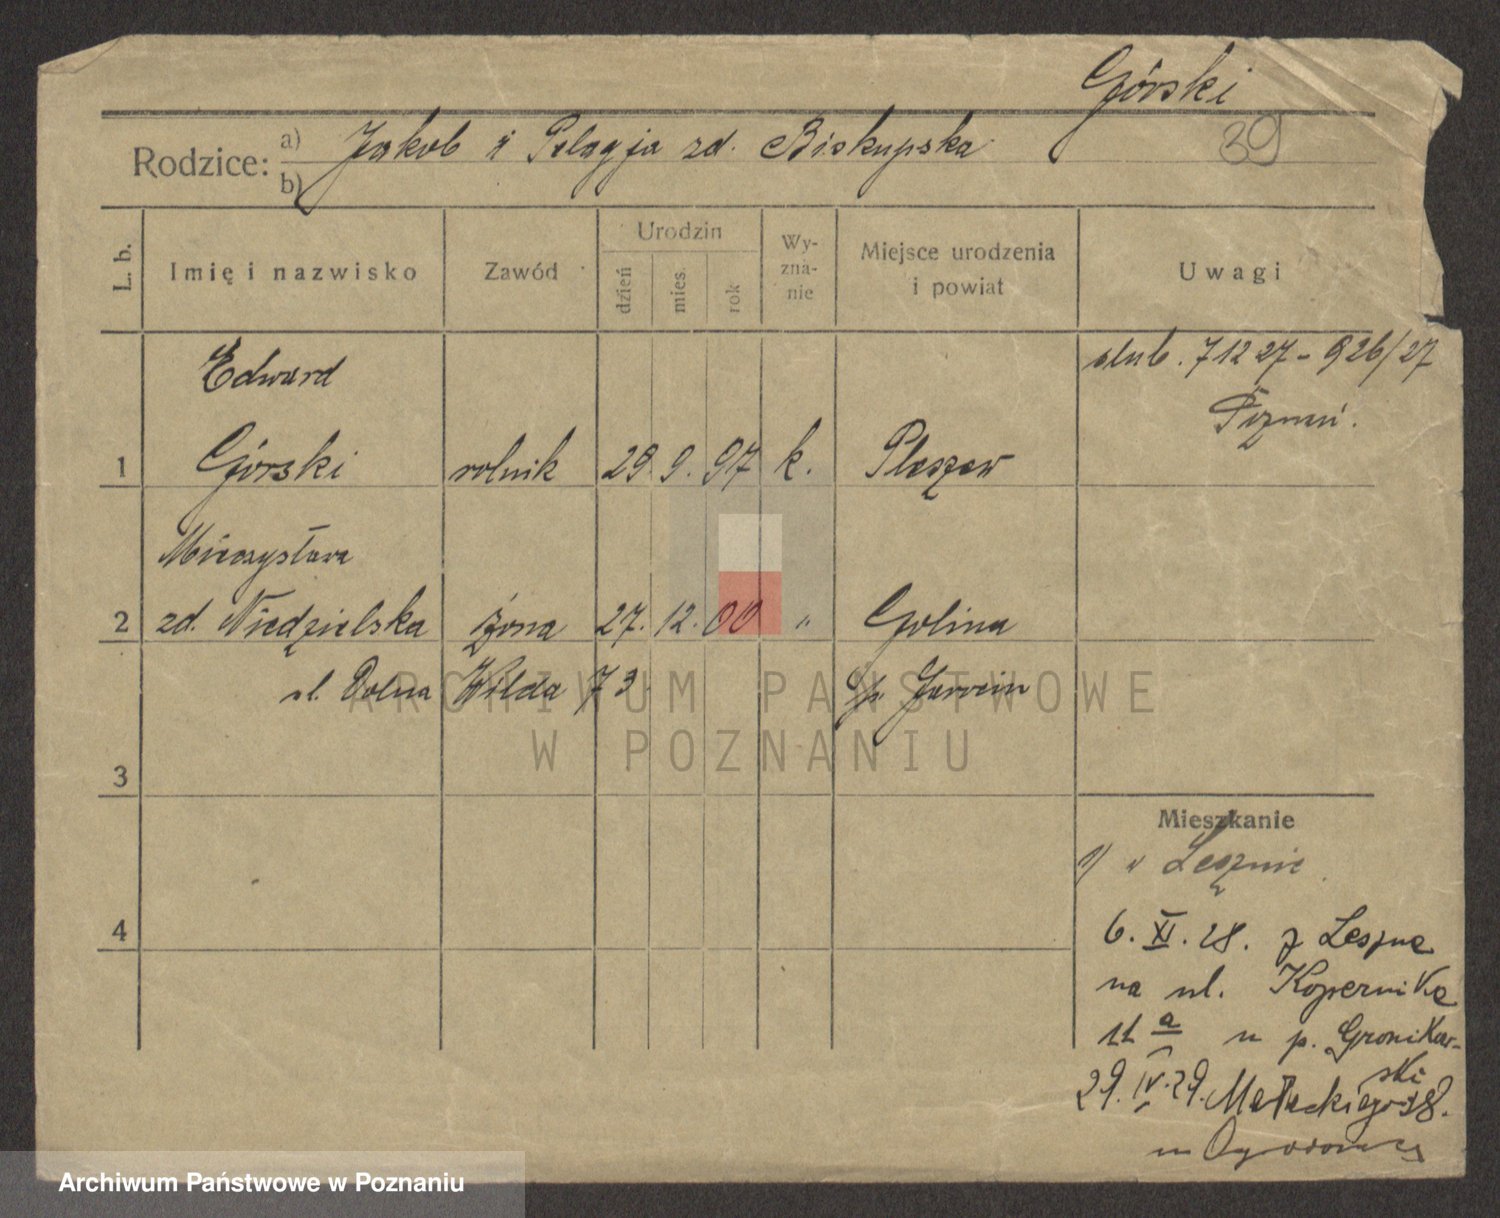 Górski
39
Rodzice: a) Jakob i Pelagja zd. Biskupska
b)
L. b.
Imię i nazwisko
Zawód
Urodzin
dzień
mies.
rok
Wy-
zna-
nie
Miejsce urodzenia
i powiat
Uwagi
Edward
ślub. 7 12 27 - 926/27
Poznań.
1 Górski rolnik 29. 9. 97 k. Pleszew
Mieczysława
2 zd. Niedzielska żona 27. 12. 00 " Golina
ul. Dolna Wilda 73.
p. Jarocin
ARCHIWUM PAŃSTWOWE
W POZNANIU
3
Mieszkanie
1) w Lesznie
4
6. XI. 28. z Leszna
na ul. Kopernika
11 a u p. Gronikar-
ski
29. IV. 29. Małeckiego 38.
Archiwum Państwowe w Poznaniu